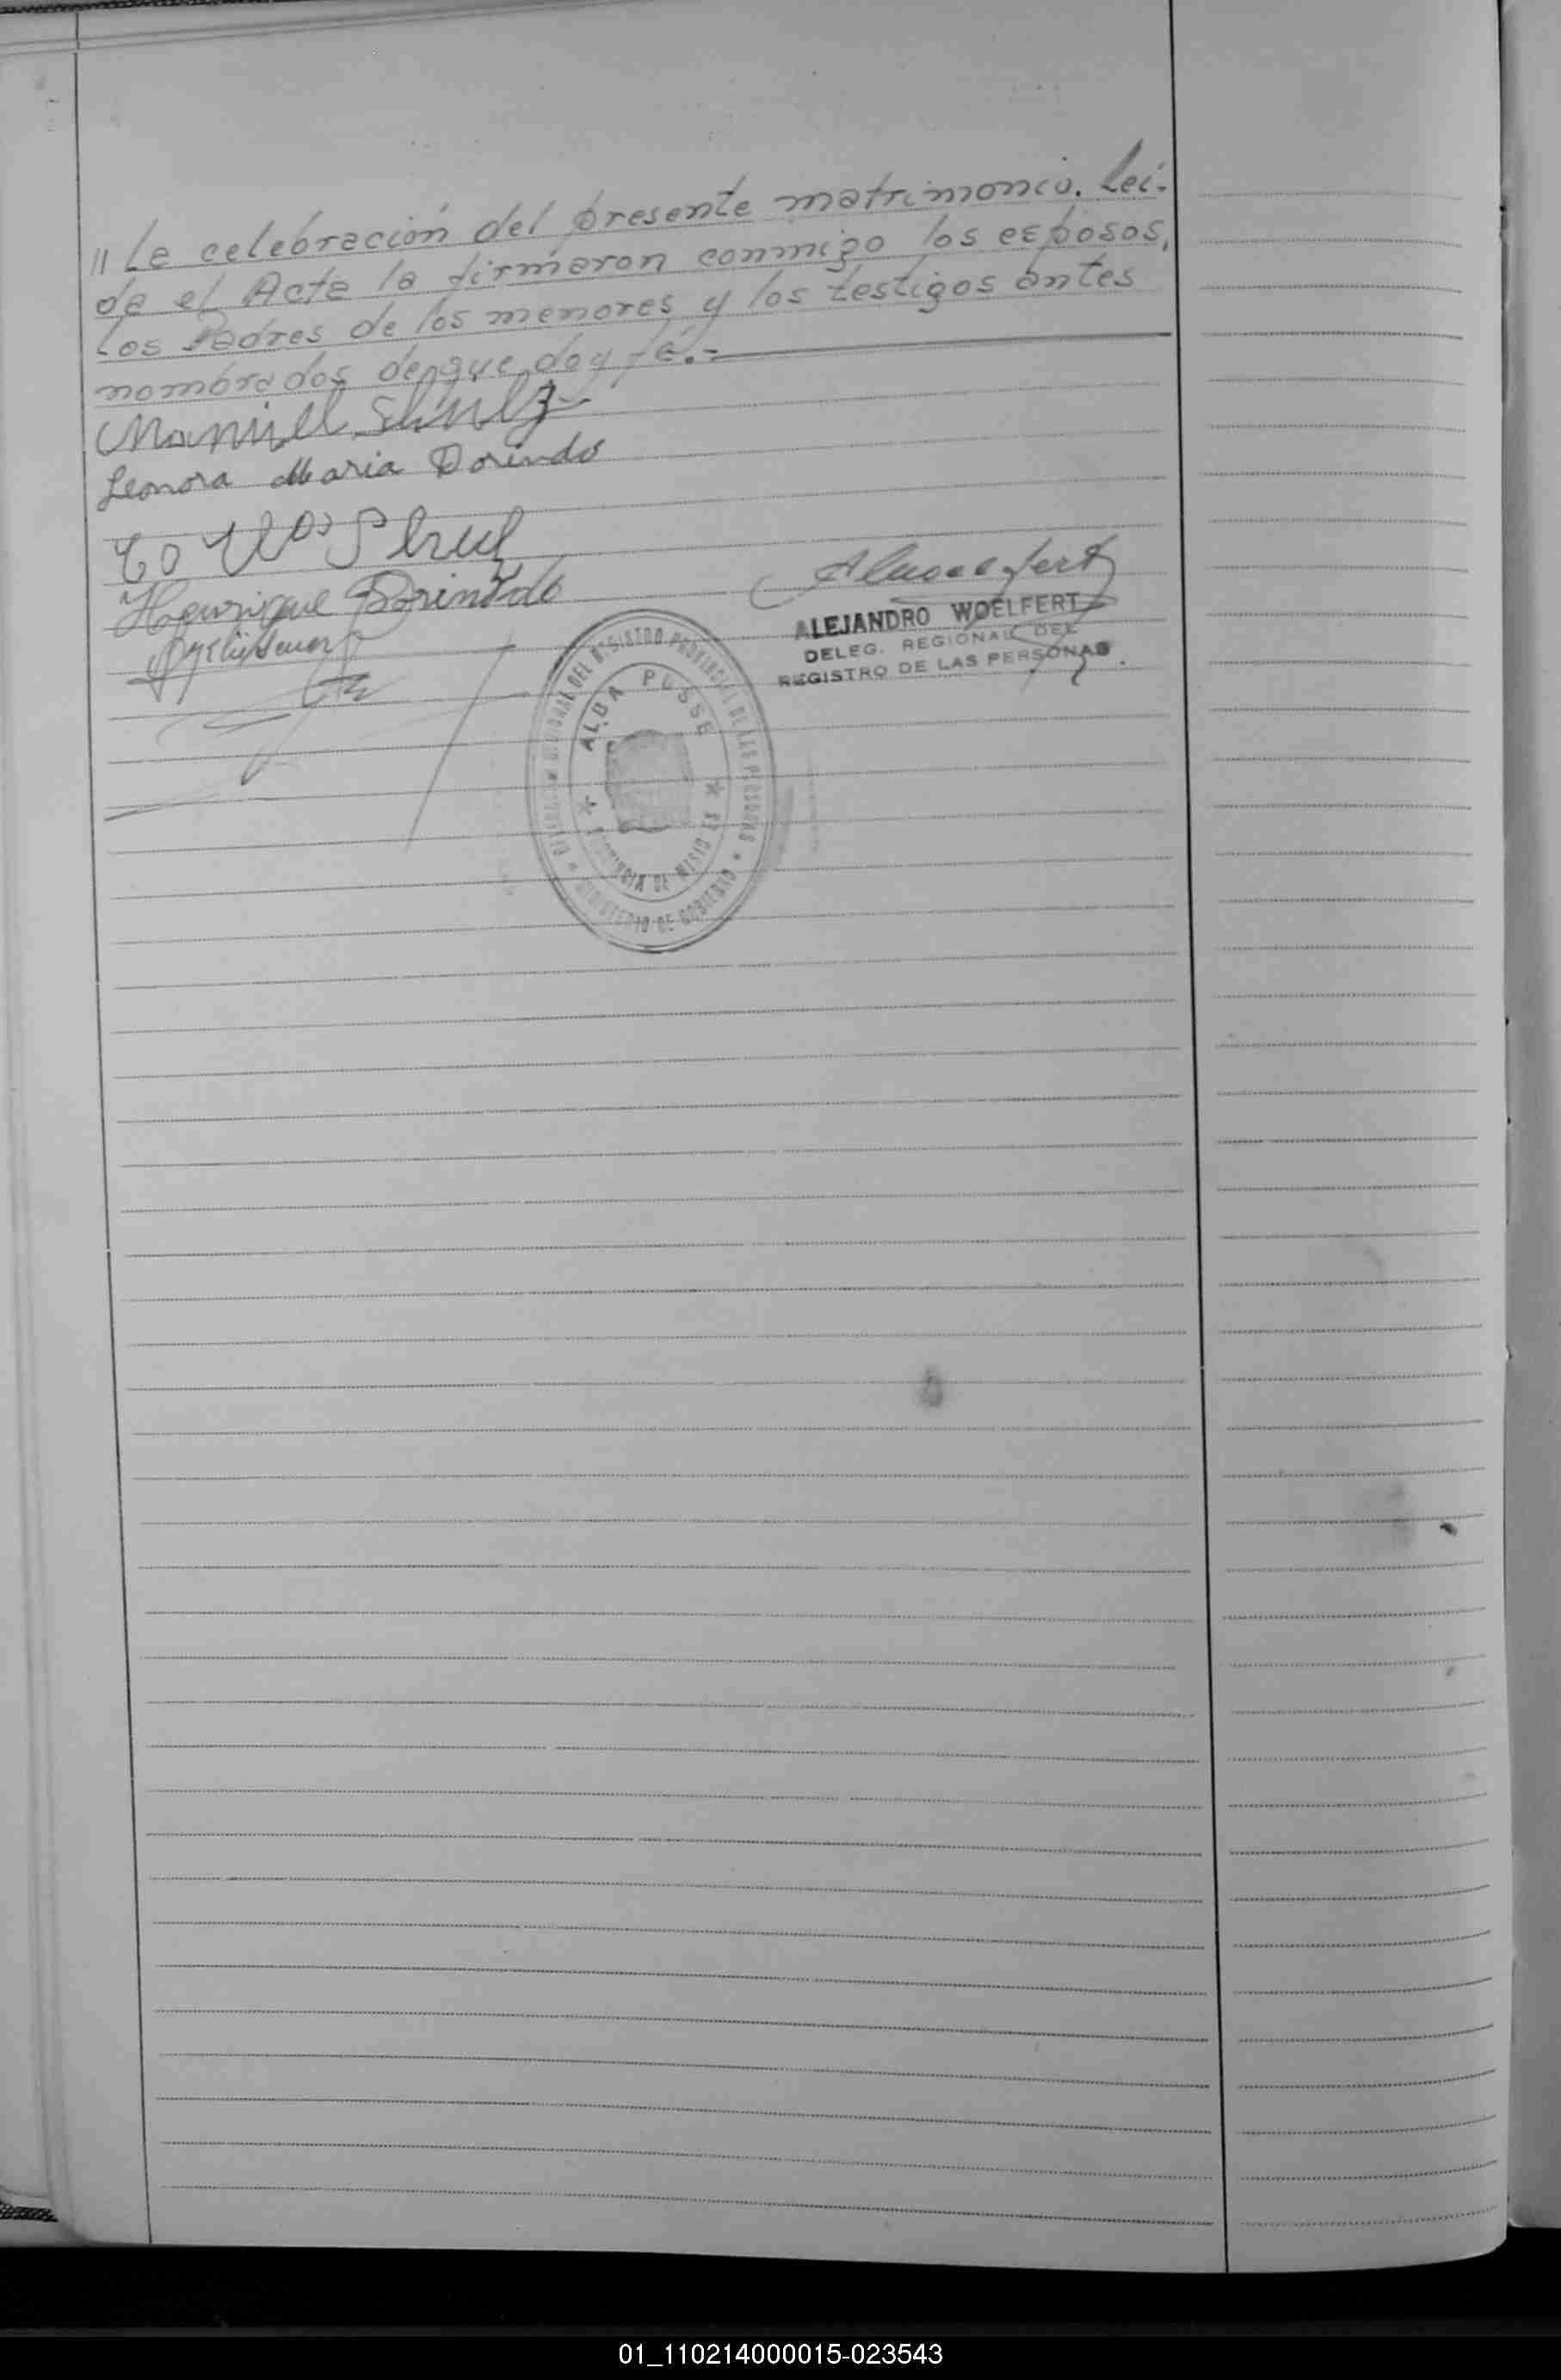 " La celebración del presente matrimonio. Leí-
da el Acta la firmaron conmigo los esposos,
los Padres de los menores y los testigos antes
nombrados de que doy fé.-
Manuell Shulz
Leonora Maria Dorindo
Henrique Dorindo
ALEJANDRO WOELFERT
DELEG. REGIONAL DEL
REGISTRO DE LAS PERSONAS
DEL REGISTRO PROVINCIAL DE LAS PERSONAS
MINISTERIO DE GOBIERNO
ALBA POSSE
PROVINCIA DE MISIONES
01_110214000015-023543